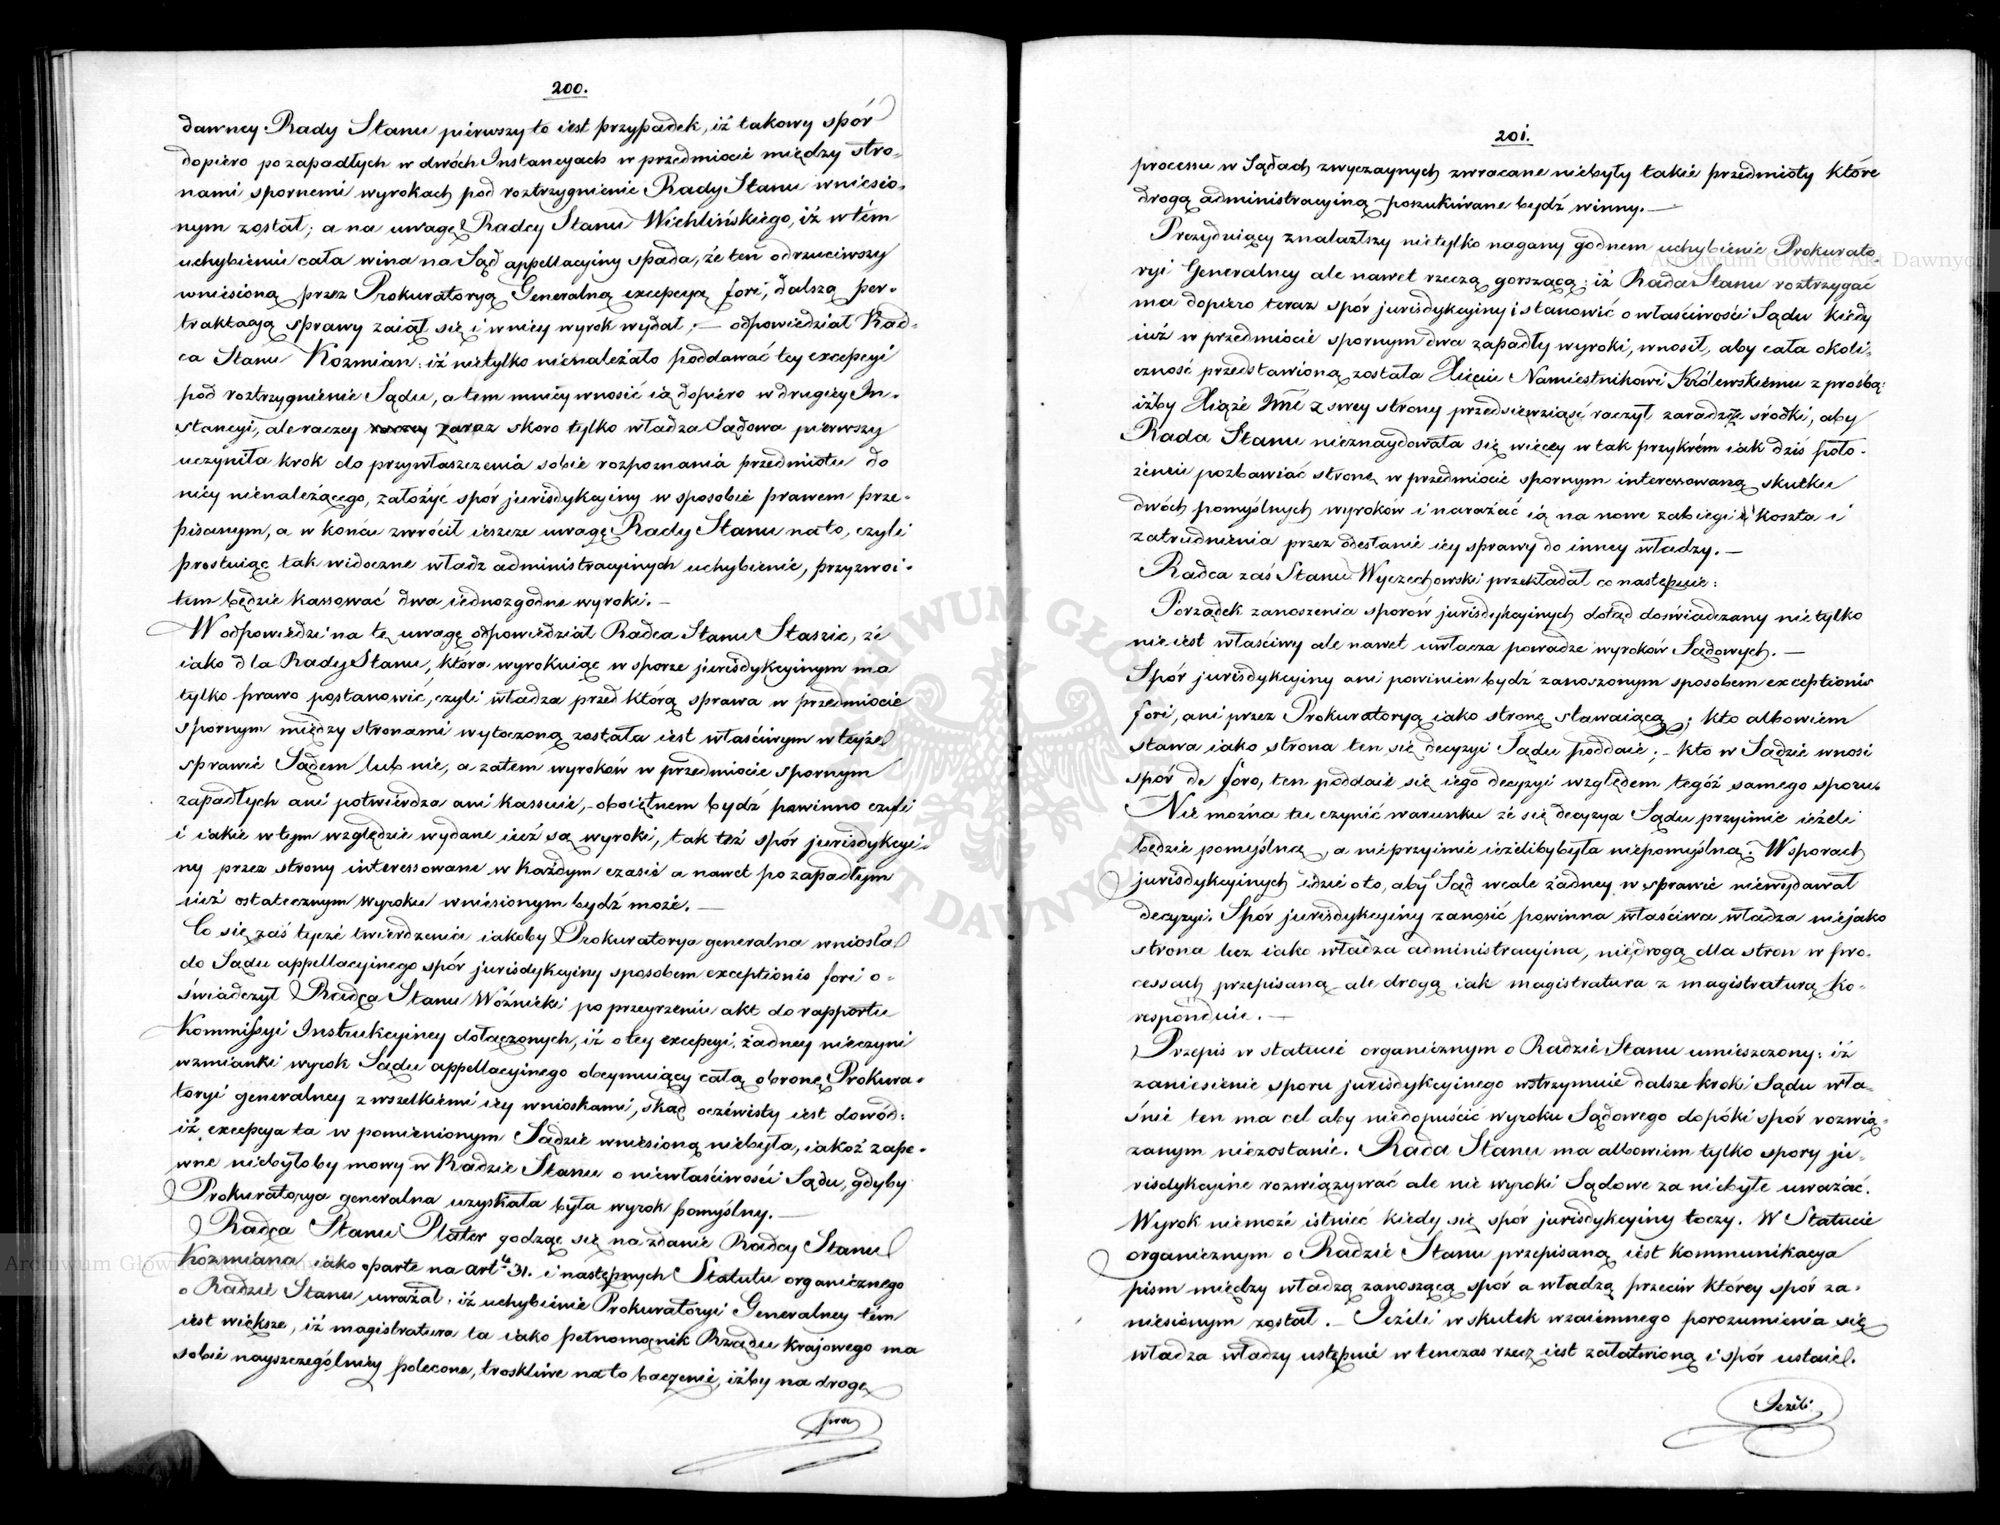 200.
dawney Rady Stanu pierwszy to iest przypadek, iż takowy spór
dopiero po zapadłych w dwóch Instancyach w przedmiocie między stro-
nami spornemi wyrokach pod roztrzygnienie Rady Stanu wniesio-
nym został; a na uwagę Radcy Stanu Wichlińskiego, iż w tém
uchybieniu cała wina na Sąd appellacyiny spada, że ten odrzuciwszy
wniesioną przez Prokuratoryą Generalną excepcyą fori, dalszą per-
traktacyą sprawy zaiął się i w niey wyrok wydał; — odpowiedział Rad-
ca Stanu Kozmian: iż nietylko nienależało poddawać tey excepcyi
pod roztrzygnienie Sądu, a tem mniey wnosić ią dopiero w drugiey In-
stancyi, ale raczey zaraz skoro tylko władza Sądowa pierwszy
uczyniła krok do przywłaszczenia sobie rozpoznania przedmiotu do
niey nienależącego, założyć spór jurisdykcyiny w sposobie prawem prze-
pisanym, a w końcu zwrócił ieszcze uwagę Rady Stanu na to, czyli
prostuiąc tak widoczne władz administracyinych uchybienie, przyzwoi-
tem będzie kassować dwa iednozgodne wyroki. —
W odpowiedzi na tę uwagę odpowiedział Radca Stanu Staszic, że
iako dla Rady Stanu, która wyrokuiąc w sporze jurisdykcyinym ma
tylko prawo postanowić, czyli władza przed którą sprawa w przedmiocie
spornym między stronami wytoczoną została iest właściwym w teyże
sprawie Sądem lub nie, a zatem wyroków w przedmiocie spornym
zapadłych ani potwierdza ani kassuie, - oboiętnem bydź powinno czyli
i iakie w tym względzie wydane iuż są wyroki, tak też spór jurisdykcyi-
ny przez strony interessowane w każdym czasie a nawet po zapadłym
iuż ostatecznym wyroku wniesionym bydź może. —
Co się zaś tycze twierdzenia iakoby Prokuratorya generalna wniosła
do Sądu appellacyinego spór jurisdykcyiny sposobem exceptionis fori o-
świadczył Radca Stanu Woźnicki po przeyrzeniu akt do rapportu
Kommissyi Instrukcyiney dołączonych, iż o tey excepcyi, żadney nieczyni
wzmianki wyrok Sądu appellacyinego obeymuiący całą obronę Prokura-
toryi generalney z wszelkiemi iey wnioskami, skąd oczéwisty iest dowód:
iż excepcya ta w pomienionym Sądzie wniesioną niebyła, iakoż zape-
wne niebyłoby mowy w Radzie Stanu o niewłaściwości Sądu, gdyby
Prokuratorya generalna uzyskała była wyrok pomyślny. —
Radca Stanu Plater godząc się na zdanie Radcy Stanu
Kozmiana iako oparte na art.le 31. i następnych Statutu organicznego
o Radzie Stanu uważał: iż uchybienie Prokuratoryi Generalney tém
iest większe, iż magistratura ta iako pełnomocnik Rządu krajowego ma
sobie nayszczególniey polecone, troskliwe na to baczenie, iżby na drogę
pro
201.
processu w Sądach zwyczaynych zwracane niebyły takie przedmioty które
drogą administracyiną poszukiwane bydź winny. —
Prezyduiący znalazłszy nietylko nagany godnem uchybienie Prokurato-
ryi Generalney ale nawet rzeczą gorszącą: iż Rada Stanu roztrzygać
ma dopiero teraz spór jurisdykcyiny i stanowić o właściwości Sądu kiedy
iuż w przedmiocie spornym dwa zapadły wyroki, wnosił, aby cała okoli-
czność przedstawioną została Xięciu Namiestnikowi Królewskiemu z prośbą:
iżby Xiąże z swey strony przedsiewziąść raczył zaradcze środki, aby
Rada Stanu nieznaydowała się więcey w tak przykrém iak dziś poło-
żeniu pozbawiać stronę w przedmiocie spornym interessowaną skutku
dwóch pomyślnych wyroków i narażać ią na nowe zabiegi koszta i
zatrudnienia przez odesłanie iey sprawy do inney władzy. —
Radca zaś Stanu Wyczechowski przekładał co następuie:
Porządek zanoszenia sporów jurisdykcyinych dotąd doświadczany nie tylko
nie iest właściwy ale nawet uwłacza powadze wyroków Sądowych. —
Spór jurisdykcyiny ani powinien bydź zanoszonym sposobem exceptionis
fori, ani przez Prokuratoryą iako stronę stawaiącą; kto albowiem
stawa iako strona ten się decyzyi Sądu poddaie; - kto w Sądzie wnosi
spór de foro, ten poddaie się iego decyzyi względem tegóż samego sporu.
Nie można tu czynić warunku że się decyzya Sądu przyimie ieżeli
będzie pomyślna, a nieprzyimie ieżeliby była niepomyślna. W sporach
jurisdykcyinych idzie o to, aby Sąd wcale żadney w sprawie niewydawał
decyzyi. Spór jurisdykcyiny zanosić powinna właściwa władza nie jako
strona lecz iako władza administracyina, nie drogą dla stron w pro-
cessach przepisaną ale drogą iak magistratura z magistraturą ko-
responduie. —
Przepis w statucie organicznym o Radzie Stanu umieszczony: iż
zaniesienie sporu jurisdykcyinego wstrzymuie dalsze kroki Sądu wła-
śnie ten ma cel aby niedopuścić wyroku Sądowego dopóki spór rozwią-
zanym niezostanie. Rada Stanu ma albowiem tylko spory ju-
risdykcyine rozwiązywać ale nie wyroki Sądowe za niebyłe uważać.
Wyrok niemoże istnieć kiedy się spór jurisdykcyiny toczy. W Statucie
organicznym o Radzie Stanu przepisaną iest kommunikacya
pism między władzą zanoszącą spór a władzą przeciw którey spór za-
niesionym został. — Jeżeli w skutek wzaiemnego porozumienia się
władza władzy ustępuie w tenczas rzecz iest załatwioną i spór ustaie.
Jeżeli